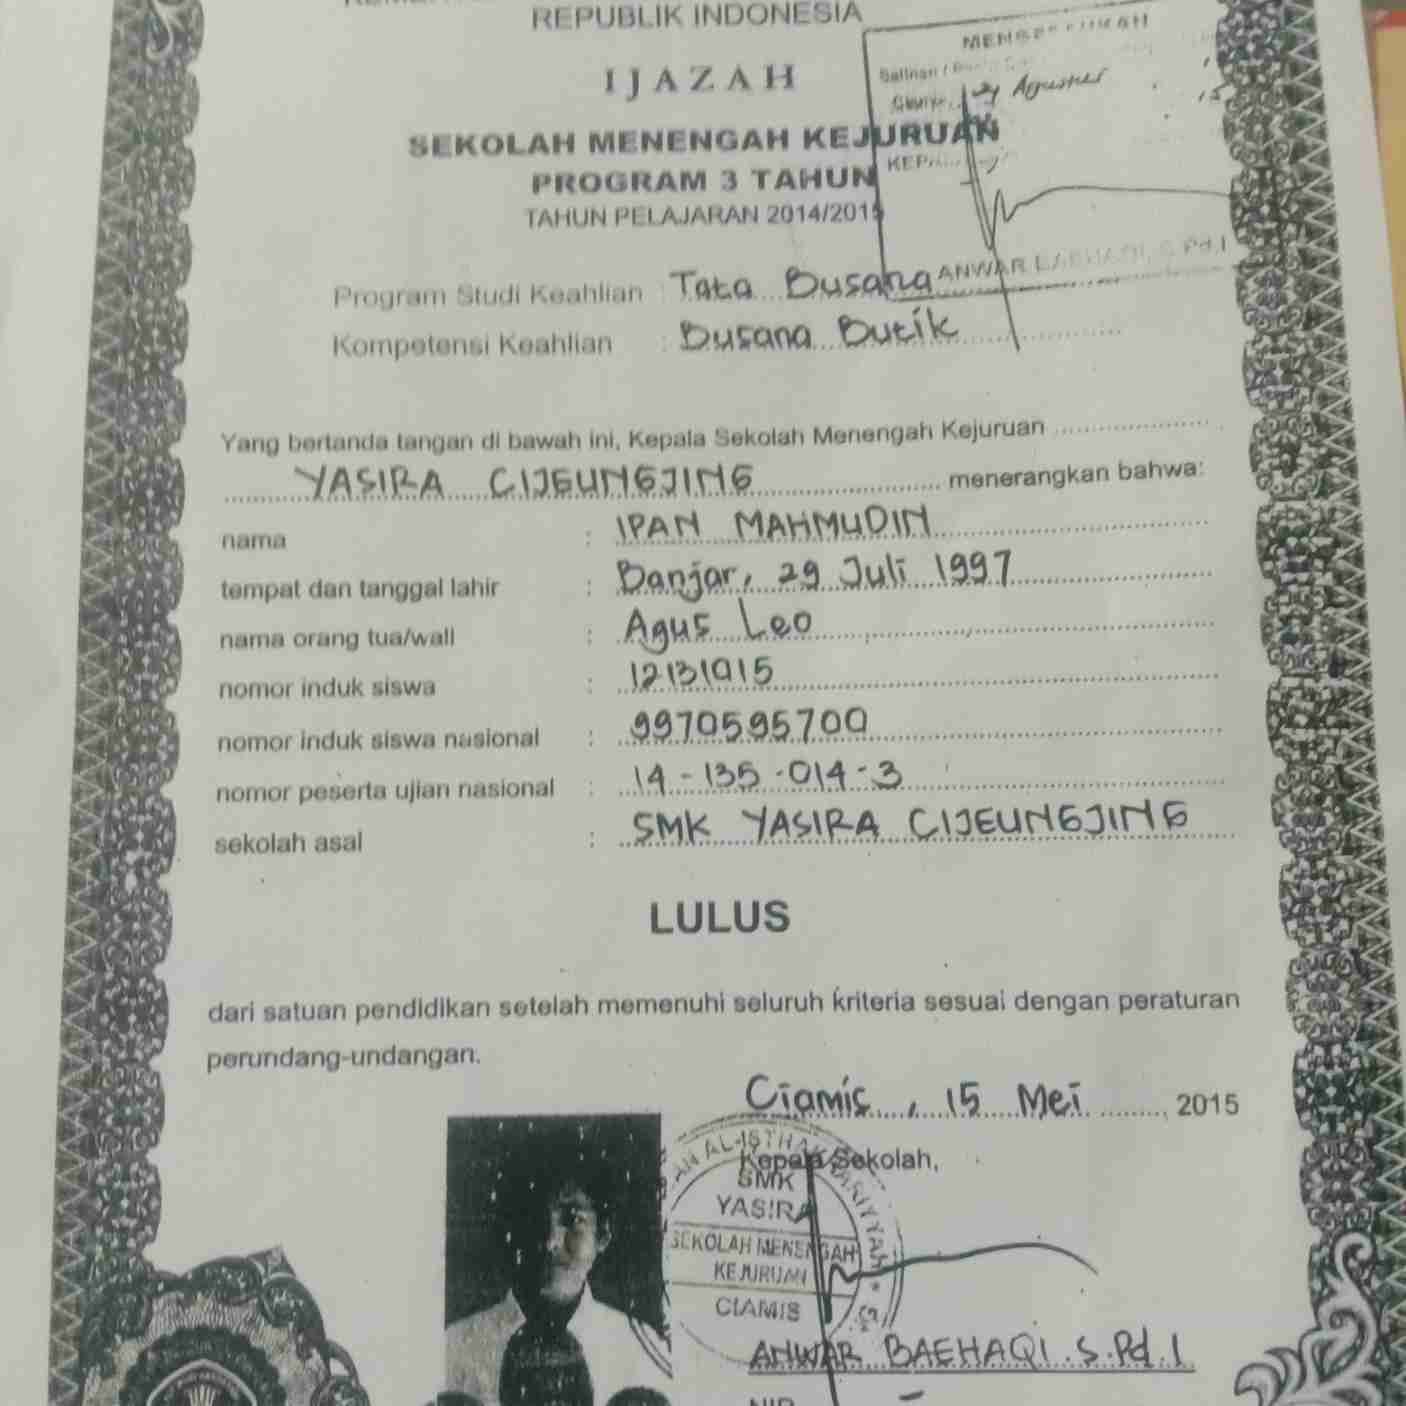 REPUBLIK INDONESIA
IJAZAH
SEKOLAH MENENGAH KEJURUAN
PROGRAM 3 TAHUN
TAHUN PELAJARAN 2014/2015
Salinan /
24 Agustus
ANWAR BAEHAQI, S.Pd.I
Program Studi Keahlian : Tata Busana
Kompetensi Keahlian : Busana Butik
Yang bertanda tangan di bawah ini, Kepala Sekolah Menengah Kejuruan
YASIRA CIJEUNGJING menerangkan bahwa:
nama : IPAN MAHMUDIN
tempat dan tanggal lahir : Banjar, 29 Juli 1997
nama orang tua/wali : Agus Leo
nomor induk siswa : 12131015
nomor induk siswa nasional : 9970595700
nomor peserta ujian nasional : 14-135-014-3
sekolah asal : SMK YASIRA CIJEUNGJING
LULUS
dari satuan pendidikan setelah memenuhi seluruh kriteria sesuai dengan peraturan
perundang-undangan.
Ciamis, 15 Mei 2015
Kepala Sekolah,
SMK
YASIRA
SEKOLAH MENENGAH
KEJURUAN
CIAMIS
ANWAR BAEHAQI.S.Pd.I
NIP